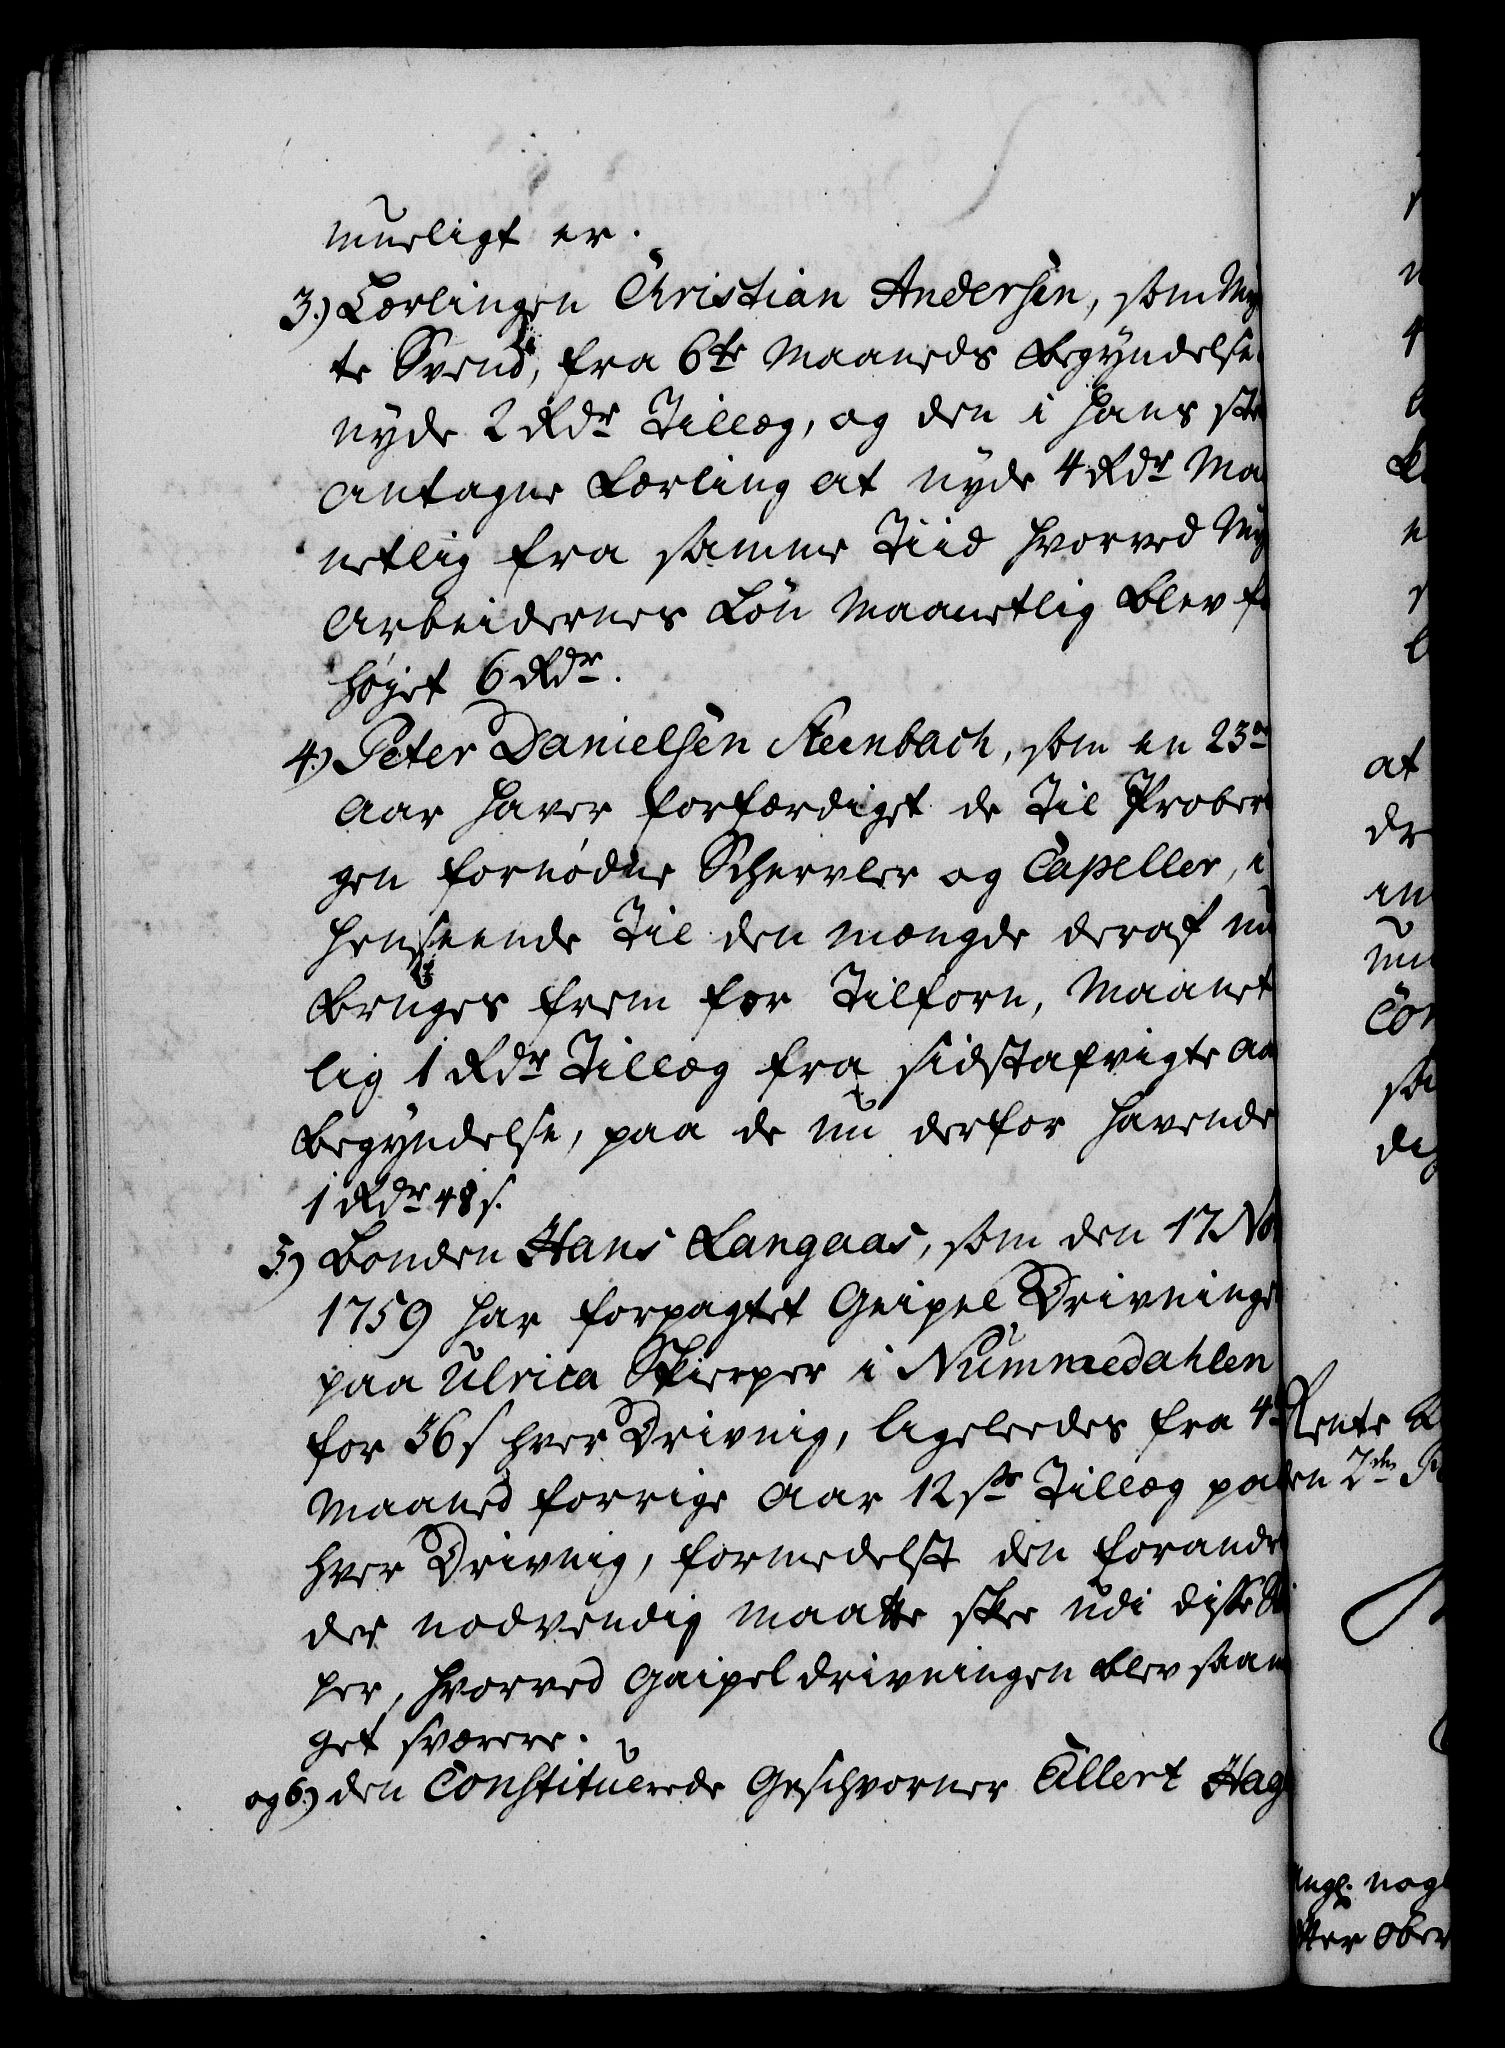 mueligt er.
3.) Lærlingen Christian Andersen, som
te Svend, fra 6te Maaneds Begyndelse
nyde 2 Rdr Tillæg, og den i hans
antagne Lærling at nyde 4 Rdr Ma
netlig fra samme Tiid hvorved
Arbeidernes Lön Maanetlig blev
höjet 6 Rdr.
4.) Peter Danielsen Steenbach, som en 23
Aar haver forfærdiget de til Prober
gen fornödne Schervler og Capeller, i
henseende til den mængde deraf nu
bruges frem for tilforn, Maanet
lig 1 Rdr Tillæg fra sidstafvigte Aa
Begyndelse, paa de nu derfor havende
1 Rdr 48 s.
5.) Bonden Hans Langaas, som den 17 No
1759 har forpagtet Geipel Drivninge
paa Ulrica Skierper i Nummedahlen
for 36 s hver Drivnig, ligeleedes fra 4
Maaned forrige Aar 12 s Tillæg paa
hver Drivnig, formedelst den forande
der nødvendig maatte skee udi disse
per, hvorved Gaipel drivningen blev saa
get sværere.
og 6.) den Constituerede Geschvorner Ellert Hag
at
Rente
en 2den
nogl
ter Ober